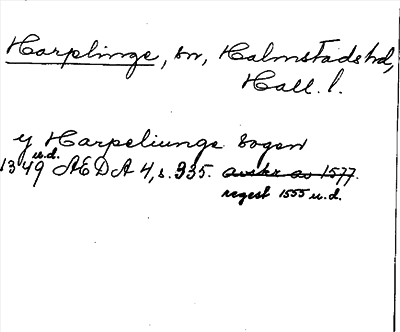 Harplinge, sn, Halmstads hd,
Hall. l.
y Harpeliunge sogen
1349 u.d. AEDA 4, s. 335. avskr av 1577.
regest 1555 u.d.